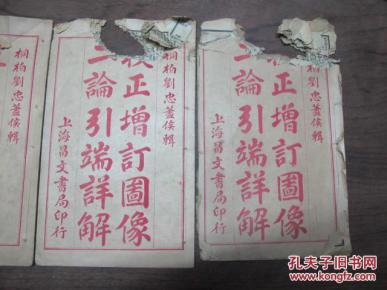 桐柏劉忠藎侯輯
正增訂圖像
二論引端詳解
上海昌文書局印行
桐柏劉忠藎侯輯
正增訂圖像
二論引端詳解
上海昌文書局印行
孔夫子旧书网
KONGFZ.COM